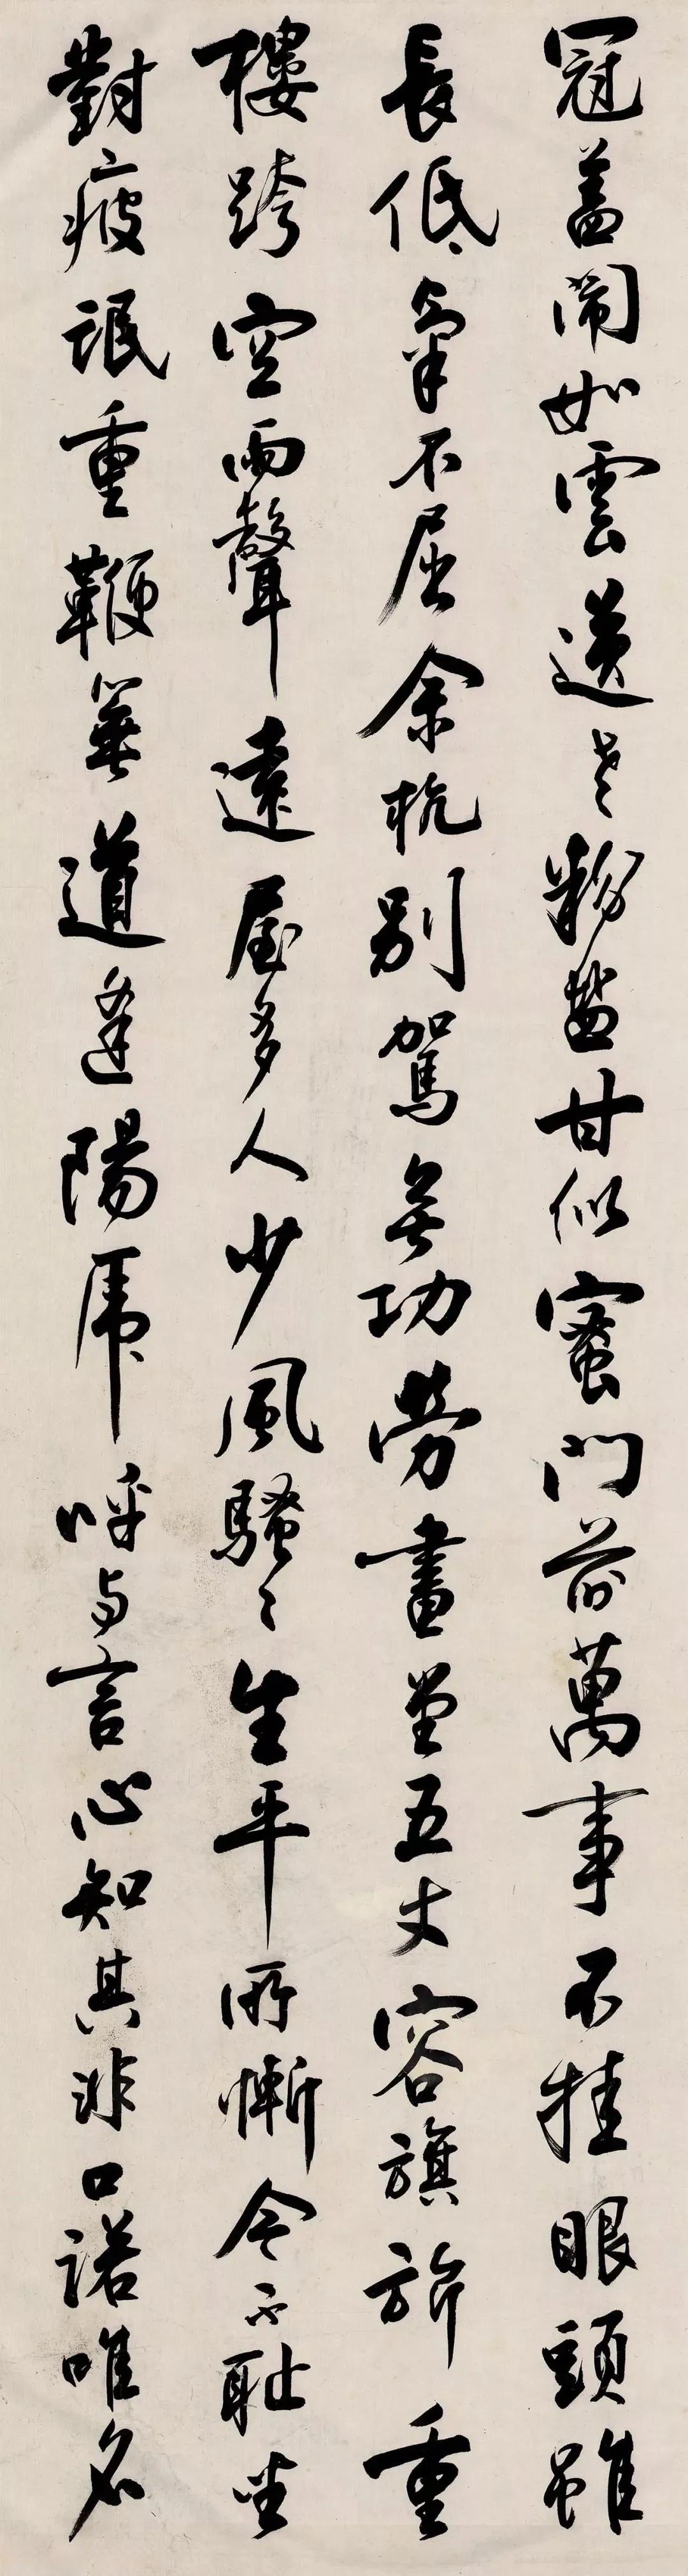 冠蓋鬧如雲遺老粉鹽甘似蜜門前萬事不挂眼頭雖
長低氣不屈余杭別駕無功勞畫堂五丈容旗旂重
樓跨空雨聲遠屋多人少風騷〻生平所慚今不耻坐
對疲氓重鞭箠道逢陽虎呼与言心知其非口諾唯名